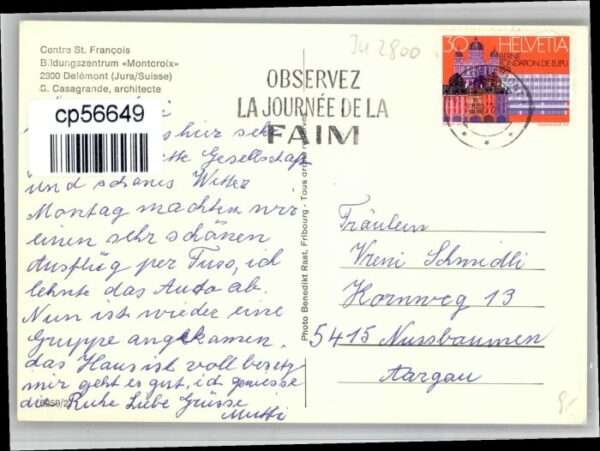 Centre St. François
Bildungszentrum «Montcroix»
2300 Delémont (Jura/Suisse)
G. Casagrande, architecte
cp56649
hier sehr
Gesellschaft
und schönes Wetter
Montag machten wir
einen sehr schönen
Ausflug per Fuss, ich
lehnte das Auto ab.
Nun ist wieder eine
Gruppe angekommen.
das Haus ist voll besetzt
mir geht es gut, ich geniesse
die Ruhe Liebe Grüsse
Mutti
Photo Benedikt Rast, Fribourg - Tous droits
Ju 2800
OBSERVEZ
LA JOURNÉE DE LA
FAIM
30 HELVETIA
BERNE
FONDATION DE L'UPU
Fräulein
Vreni Schmidli
Hornweg 13
5415 Nussbaumen
Aargau